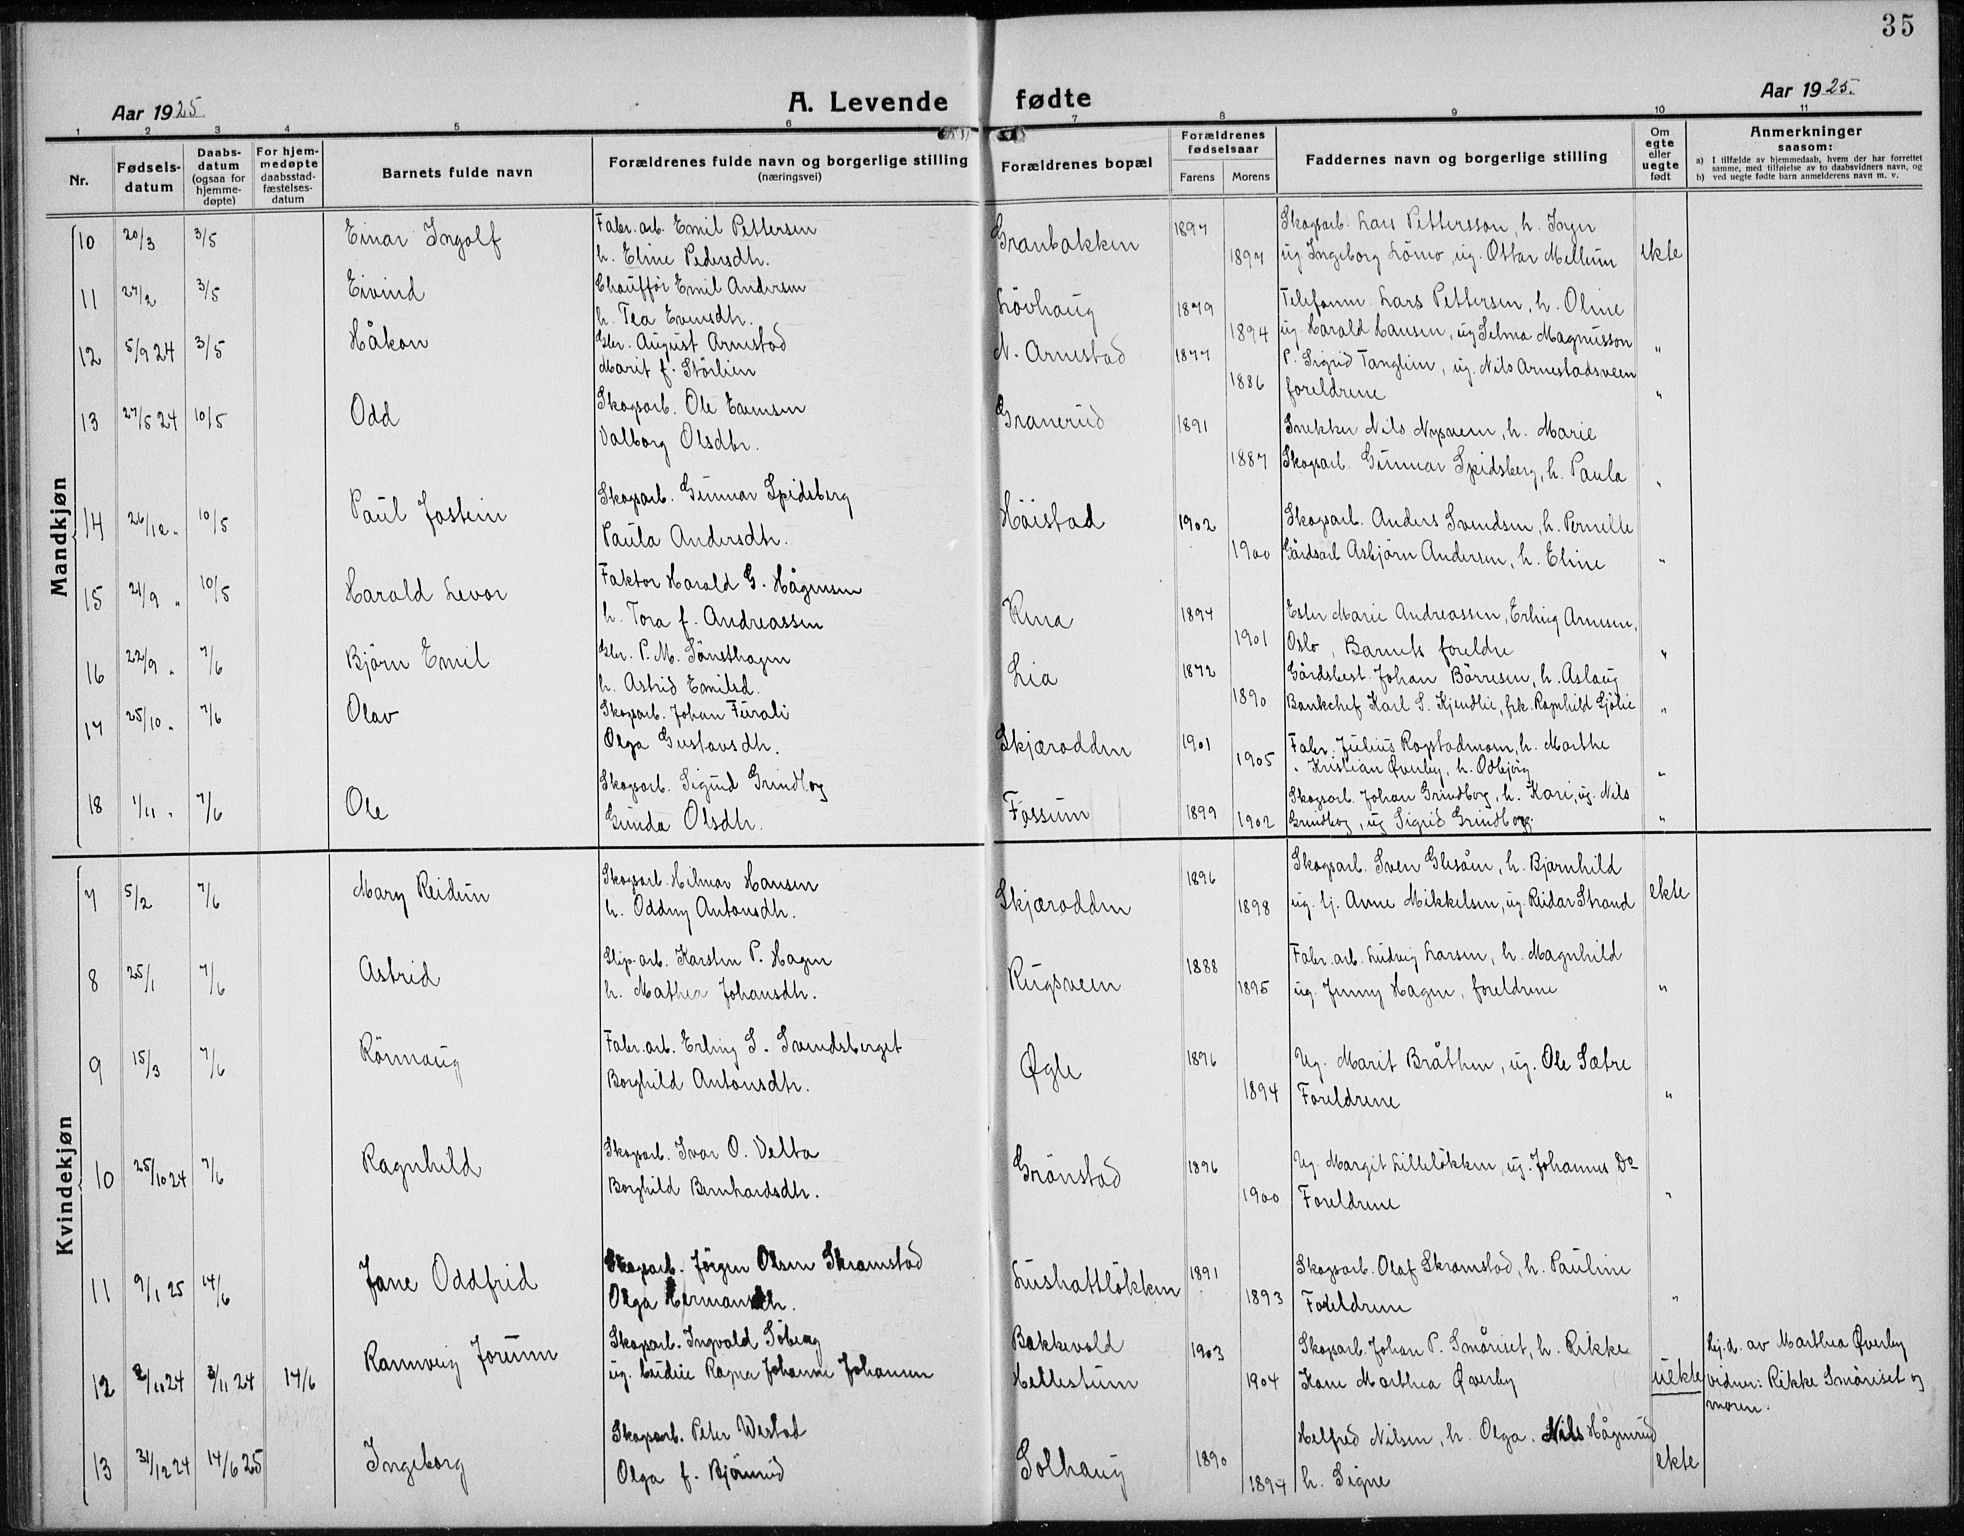 35
Aar 1925
A. Levende fødte
Aar 1925.
1 2 3 4 5 6 7 8 9 10 11
Nr.
Fødsels-
datum
Daabs-
datum
(ogsaa for
hjemme-
døpte)
For hjem-
medøpte
daabsstad-
fæstelses-
datum
Barnets fulde navn
Forældrenes fulde navn og borgerlige stilling
(næringsvei)
Forældrenes bopæl
Forældrenes
fødselsaar
Farens Morens
Faddernes navn og borgerlige stilling
Om
egte
eller
uegte
født
Anmerkninger
saasom:
a) I tilfælde av hjemmedaab, hvem der har forrettet
samme, med tilføielse av to daabsvidners navn, og
b) ved uegte fødte barn anmelderens navn m. v.
Mandkjøn
10 20/3 3/5 Einar Ingolf Fabr. arb. Emil Pettersen Granbakken 1897 Skogsarb. Lars Pettersson, h. Inga
h. Eline Pedersdtr. 1897 ug. Ingeborg Lömo, ug. Ottar Mellum ekte
11 27/2 3/5 Eivind Chauffør Emil Andersen Lövhaug 1879 Telefonm. Lars Pettersen, h. Oline
h. Tea Evensdtr. 1894 ug. Harald Hansen, ug Selma Magnusson "
12 5/9 24 3/5 Håkon Gbr. August Arnestad N. Arnestad 1877 P. Sigrid Tanglien, ug. Nils Arnestadsveen
Marit f. Störlien 1886 foreldrene "
13 27/5 24 10/5 Odd Skogsarb. Ole Evensen Granerud 1891 Snekker Nils Nysveen, h. Marie
Valborg Olsdtr. 1887 Skogsarb. Gunnar Spidsberg, h. Paula "
14 26/12 " 10/5 Paul Jostein Skogsarb. Gunnar Spidsberg Höistad 1902 Skogsarb. Anders Svendsen, h. Pernille
Paula Andersdtr. 1900 Gårdsarb Asbjörn Andersen, h. Eline "
15 21/9 " 10/5 Harald Levor Faktor Harald G. Hågensen Rena 1894 Ester Marie Andreassen, Erling Arnesen,
h. Tora f. Andreassen 1901 Oslo, Barnets foreldre "
16 22/9 " 7/6 Björn Emil Gbr. P. M. Sönsthagen Lia 1872 Gårdsbest. Johan Börresen, h. Aslaug
h. Astrid Emilsd. 1890 Bankchef Karl S. Kjendlie, frk. Ragnhild Sjölie "
17 25/10 " 7/6 Olav Skogsarb. Johan Furali Skjæroddm 1901 Fabr. Julius Rogstadmoen, h. Marthe
Olga Gustavsdtr. 1905 " Kristian Øverby, h. Odbjörg "
18 1/11 " 7/6 Ole Skogsarb. Sigurd Grindbog Fossum 1899 Skogsarb. Johan Grindbog, h. Kari, ug. Nils
Gunda Olsdtr. 1902 Grindbog, ug Sigrid Grindbog. "
Kvindekjøn
7 5/2 7/6 Mary Reidun Skogsarb. Hilmar Hansen Skjæroddm 1896 Skogsarb. Sven Glesåen, h. Bjarnhild
h. Oddny Antonsdtr. 1898 ug. tj. Anne Mikkelsen, ug. Reidar Strand ekte
8 25/1 7/6 Astrid Slip. arb. Karsten P. Hagen Rugsveen 1888 Fabr. arb. Ludvig Larsen, h. Magnhild
h. Mathea Johansdtr. 1895 ug. Jenny Hagen, foreldrene "
9 15/3 7/6 Rönnaug Fabr. arb. Erling S. Svendsberget Øgle 1896 Ug. Marit Bråthen, ug. Ole Sætre
Borghild Antonsdtr. 1894 Foreldrene "
10 25/10 24 7/6 Ragnhild Skogsarb. Ivar O. Velta Grönstad 1896 Ug. Margit Lilleløkken, ug. Johannes Do
Borghild Bernhardsdtr. 1900 Foreldrene "
11 9/1 25 14/6 Jane Oddfrid Skogsarb. Jörgen Olsen Skramstad Lushattlökken 1891 Skogsarb. Olaf Skramstad, h. Pauline
Olga Hermansdtr. 1893 Foreldrene "
12 2/11 24 3/11 24 14/6 Rannveig Jorunn Skogsarb. Ingvald Söberg Bakkevold 1903 Skogsarb. Johan P. Småriset, h. Rikke Hj. d. av Marthea Øverby
ug. Ragna Johanne Johansen Hellestum 1904 Kone Marthea Øverby uekte vidner: Rikke Småriset og
moren.
13 31/12 24 14/6 25 Ingeborg Skogsarb. Peter Westad Solhaug 1890 Helfred Nilsen, h. Olga. Nils Hågenrud
Olga f. Björnrud 1894 h. Signe ekte